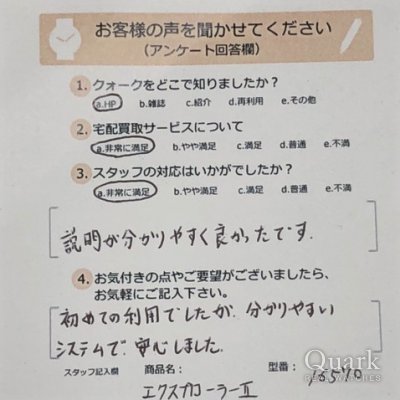 お客様の声を聞かせてください
(アンケート回答欄)
1. クォークをどこで知りましたか?
a.HP b.雑誌 c.紹介 d.再利用 e.その他
2. 宅配買取サービスについて
a.非常に満足 b.やや満足 c.満足 d.普通 e.不満
3. スタッフの対応はいかがでしたか?
a.非常に満足 b.やや満足 c.満足 d.普通 e.不満
説明が分かりやすく良かったです.
4. お気付きの点やご要望がございましたら、
お気軽にご記入下さい。
初めての利用でしたが、分かりやすい
システムで、安心しました.
スタッフ記入欄 商品名: 型番: 16570
エクスプローラーⅡ
Quark